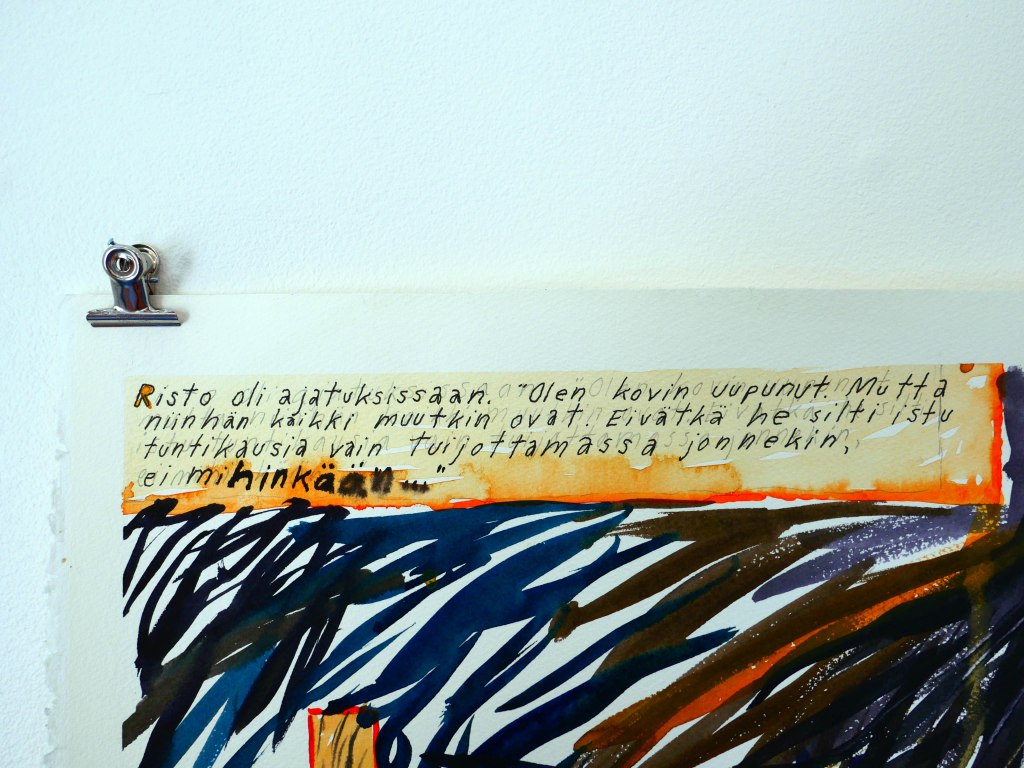 Risto oli ajatuksissaan. "Olen kovin uupunut. Mutta
niinhän kaikki muutkin ovat. Eivätkä he silti istu
tuntikausia vain tuijottamassa jonnekin,
ei mihinkään..."